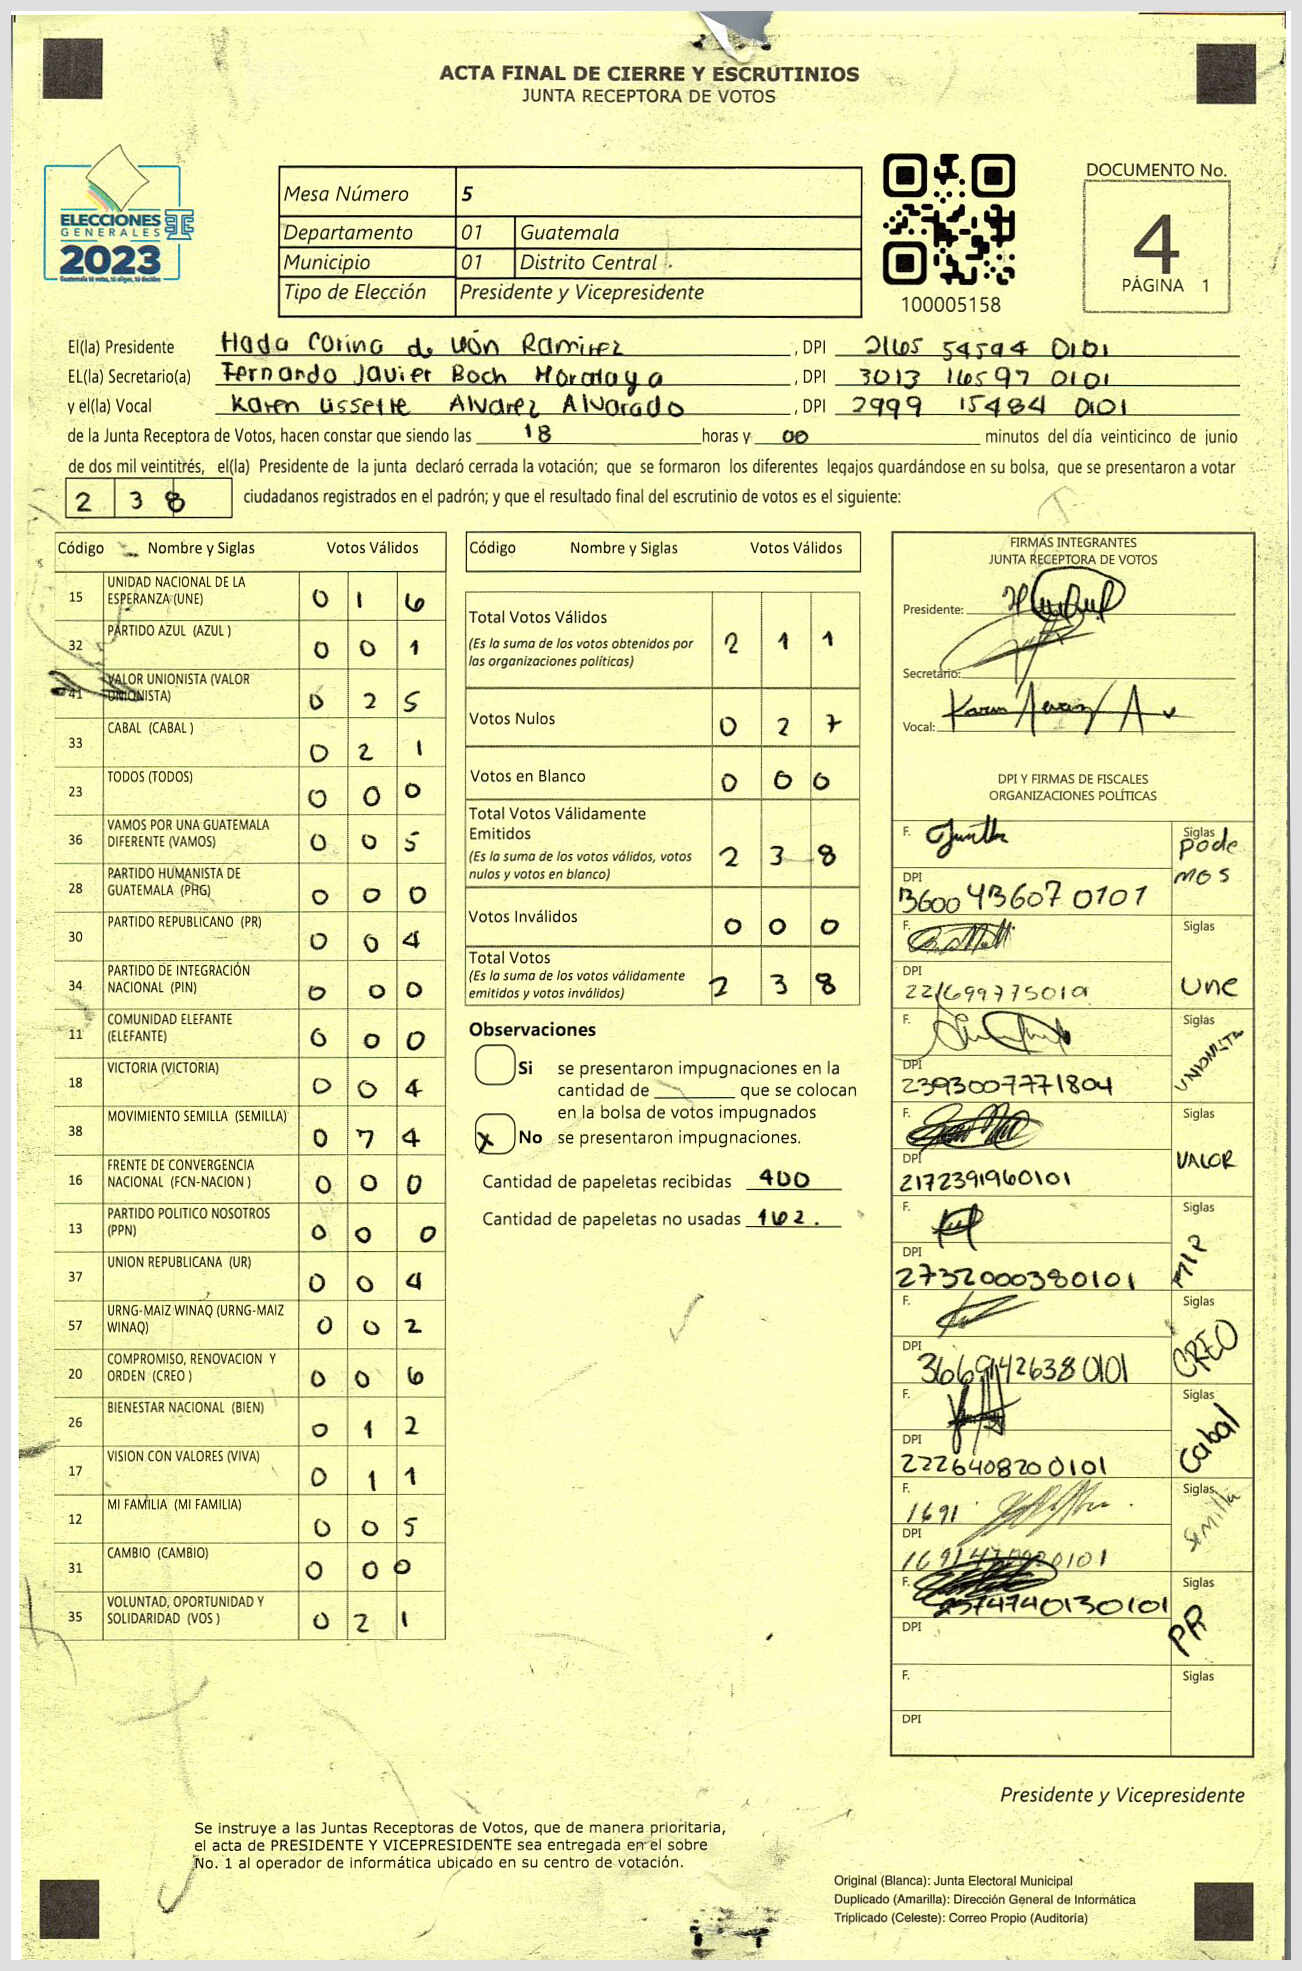 ACTA FINAL DE CIERRE Y ESCRUTINIOS
JUNTA RECEPTORA DE VOTOS
ELECCIONES
GENERALES
2023
Mesa Número 5
Departamento 01 Guatemala
Municipio 01 Distrito Central
Tipo de Elección Presidente y Vicepresidente
100005158
DOCUMENTO No.
4
PÁGINA 1
El(la) Presidente Hada Corina de León Ramirez, DPI 2165 54594 0101
EL(la) Secretario(a) Fernando Javier Boch Morataya, DPI 3013 16597 0101
y el(la) Vocal Karen Lissette Alvarez Alvarado, DPI 2999 15484 0101
de la Junta Receptora de Votos, hacen constar que siendo las 18 horas y 00 minutos del día veinticinco de junio
de dos mil veintitrés, el(la) Presidente de la junta declaró cerrada la votación; que se formaron los diferentes legajos guardándose en su bolsa, que se presentaron a votar
238 ciudadanos registrados en el padrón; y que el resultado final del escrutinio de votos es el siguiente:
Código Nombre y Siglas Votos Válidos
15 UNIDAD NACIONAL DE LA ESPERANZA (UNE) 0 1 6
32 PARTIDO AZUL (AZUL ) 0 0 1
41 VALOR UNIONISTA (VALOR UNIONISTA) 0 2 5
33 CABAL (CABAL ) 0 2 1
23 TODOS (TODOS) 0 0 0
36 VAMOS POR UNA GUATEMALA DIFERENTE (VAMOS) 0 0 5
28 PARTIDO HUMANISTA DE GUATEMALA (PHG) 0 0 0
30 PARTIDO REPUBLICANO (PR) 0 0 4
34 PARTIDO DE INTEGRACIÓN NACIONAL (PIN) 0 0 0
11 COMUNIDAD ELEFANTE (ELEFANTE) 0 0 0
18 VICTORIA (VICTORIA) 0 0 4
38 MOVIMIENTO SEMILLA (SEMILLA) 0 7 4
16 FRENTE DE CONVERGENCIA NACIONAL (FCN-NACION ) 0 0 0
13 PARTIDO POLITICO NOSOTROS (PPN) 0 0 0
37 UNION REPUBLICANA (UR) 0 0 4
57 URNG-MAIZ WINAQ (URNG-MAIZ WINAQ) 0 0 2
20 COMPROMISO, RENOVACION Y ORDEN (CREO ) 0 0 6
26 BIENESTAR NACIONAL (BIEN) 0 1 2
17 VISION CON VALORES (VIVA) 0 1 1
12 MI FAMILIA (MI FAMILIA) 0 0 5
31 CAMBIO (CAMBIO) 0 0 0
35 VOLUNTAD, OPORTUNIDAD Y SOLIDARIDAD (VOS ) 0 2 1
Código Nombre y Siglas Votos Válidos
Total Votos Válidos
(Es la suma de los votos obtenidos por
las organizaciones políticas) 2 1 1
Votos Nulos 0 2 7
Votos en Blanco 0 0 0
Total Votos Válidamente
Emitidos
(Es la suma de los votos válidos, votos
nulos y votos en blanco) 2 3 8
Votos Inválidos 0 0 0
Total Votos
(Es la suma de los votos válidamente
emitidos y votos inválidos) 2 3 8
Observaciones
Si se presentaron impugnaciones en la
cantidad de que se colocan
en la bolsa de votos impugnados
x No se presentaron impugnaciones.
Cantidad de papeletas recibidas 400
Cantidad de papeletas no usadas 162.
FIRMAS INTEGRANTES
JUNTA RECEPTORA DE VOTOS
Presidente:
Secretario:
Vocal:
DPI Y FIRMAS DE FISCALES
ORGANIZACIONES POLÍTICAS
F. Siglas Podemos
DPI 3600 43607 0101
F. Siglas Une
DPI
F. Siglas UNIONISTA
DPI 2393007771804
F. Siglas VALOR
DPI 2172391960101
F. Siglas
DPI 2732000380101
F. Siglas CREO
DPI 3669142638 0101
F. Siglas Cabal
DPI 2226408200101
F. 1691 Siglas Semilla
DPI
F. Siglas PR
DPI
F. Siglas
DPI
Presidente y Vicepresidente
Se instruye a las Juntas Receptoras de Votos, que de manera prioritaria,
el acta de PRESIDENTE Y VICEPRESIDENTE sea entregada en el sobre
No. 1 al operador de informática ubicado en su centro de votación.
Original (Blanca): Junta Electoral Municipal
Duplicado (Amarilla): Dirección General de Informática
Triplicado (Celeste): Correo Propio (Auditoría)